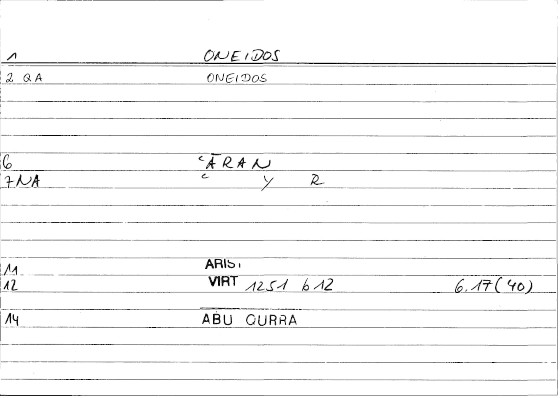 1 ONEIDOS
2 QA ONEIDOS
6 ʿĀRAN
7 NA ʿ Y R
11 ARIST
12 VIRT 1251 b12 6.17(40)
14 ABU QURRA